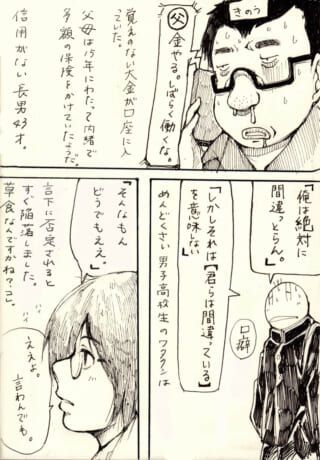 きのう
父 金やる。しばらく働くな。
覚えのない大金が口座に入
っていた。
父母は15年にわたって内緒で
多額の保険をかけていたようだ。
信用がない長男
「俺は絶対に
間違っとらん。」
「しかしそれは【君らは間違っている】
を意味しない」
口癖
めんどくさい男子高校生のワタクシは
「そんなもん
どうでもええ。」
言下に否定されると
すぐ陥落しました。
草食なんですかね?コレ。
ハイ
ハイ
ええよ。
言わんでも。